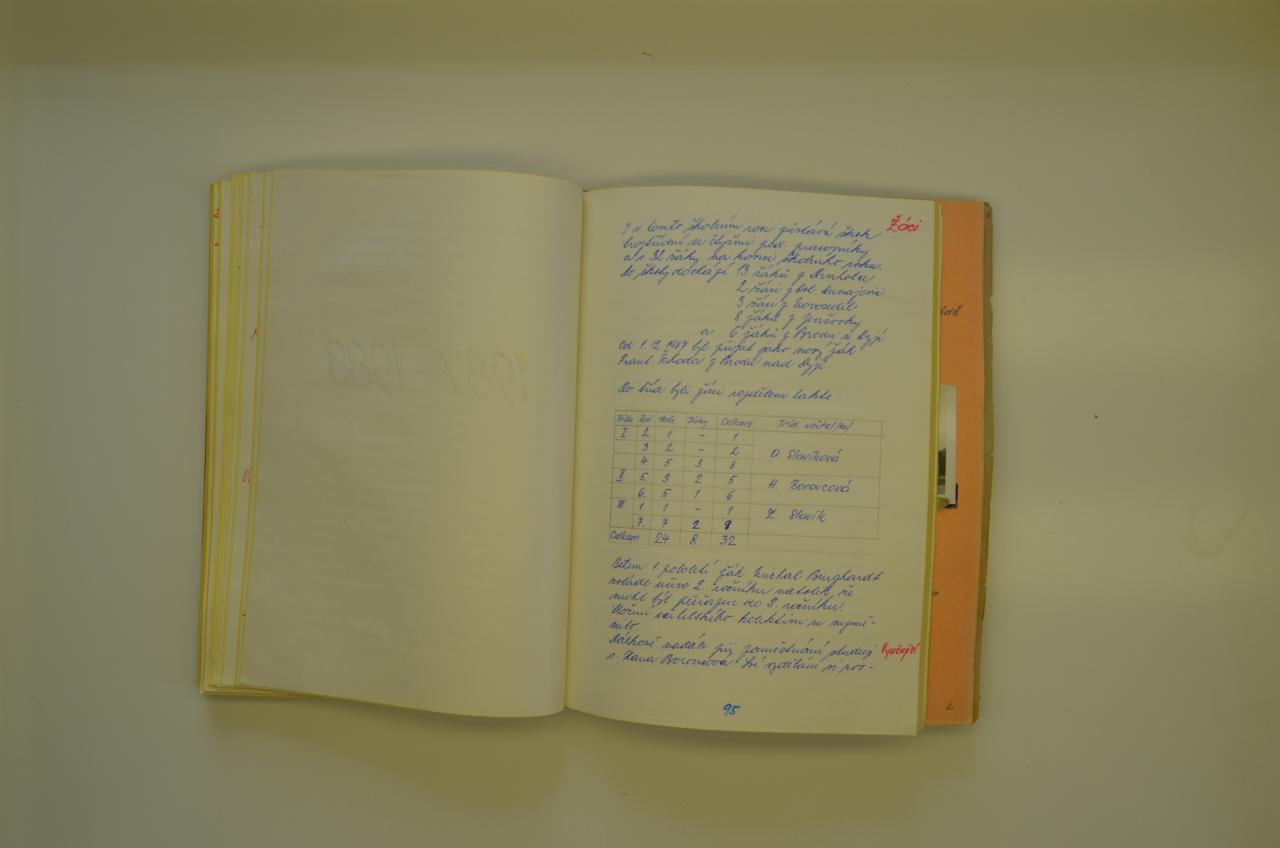 Žáci
I v tomto školním roce zůstává škola
trojtřídní se čtyřmi ped. pracovníky
a s 32 žáky na konci školního roku.
Do školy dochází 13 žáků z Drnholce
2 žáci z
3 žáci z Novosedel
8 žáků z Jevišovky
a 6 žáků z Brodu n. Dyjí
Od 1. 12. 1987 byl přijat jako nový žák
Frant. z Brodu nad Dyjí.
Do tříd byli žáci rozděleni takto.
Třída Roč. Hoši Dívky Celkem Tříd. učitel/ka/
I. 2. 1 - 1
3. 2 - 2 D. Slavíková
4. 5 3 8
II. 5. 3 2 5 H. Borovcová
6. 5 1 6
III. 1. 1 - 1 Z. Slavík
7. 7 2 9
Celkem 24 8 32
Během 1. pololetí žák Michal Burghardt
zvládl učivo 2. ročníku natolik, že
mohl být přeřazen do 3. ročníku.
Složení učitelského kolektivu se nezmě-
nilo.
Dálkově nadále při zaměstnání studuje Vyučující
s. Hana Borovcová. Své vzdělání si roz-
95